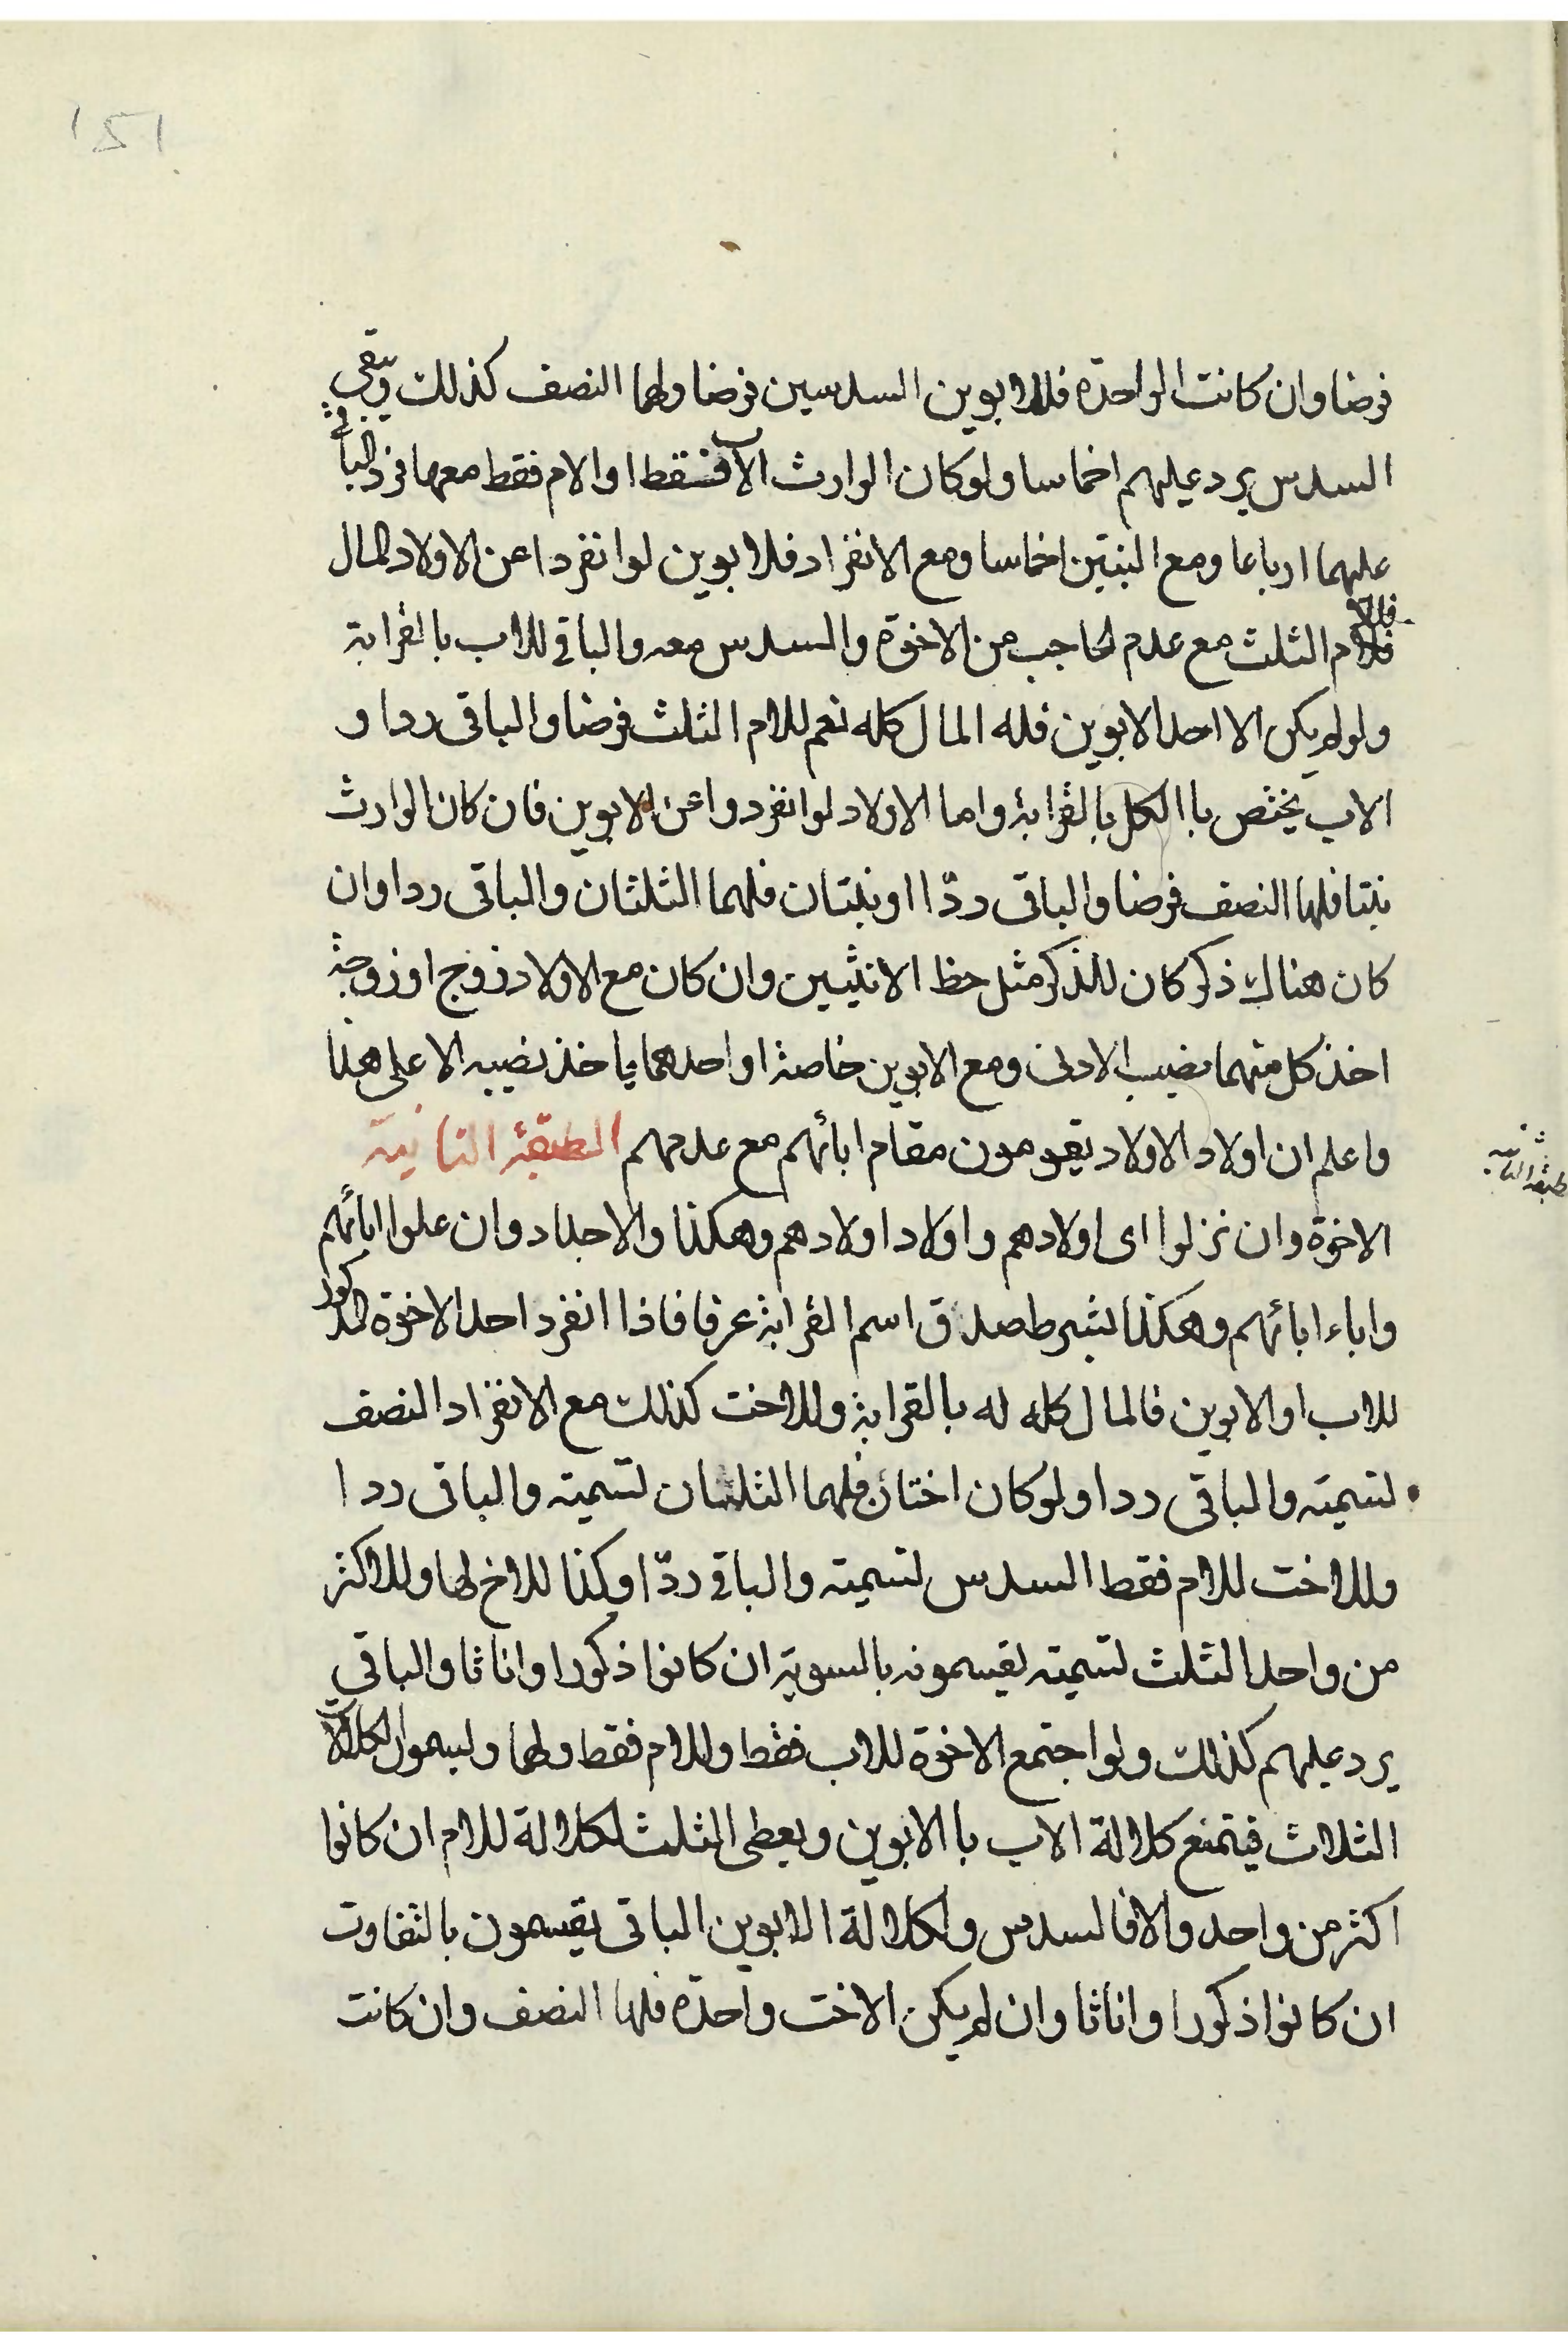 151
فرضا وان كانت الواحدة فللابوين السدسين فرضا ولها النصف كذلك ويبقى
السدس يرد عليهم اخماسا ولو كان الوارث الاب فقط او الام فقط معها فرد الباقي
عليهما ارباعا ومع البنتين اخماسا ومع الانفراد فلابوين لو انفردا عن الاولاد المال
فللام الثلث مع عدم الحاجب من الاخوة والسدس معه والباقي للاب بالقرابة
ولو لم يكن الا احد الابوين فله المال كله نعم للام الثلث فرضا والباقى ردا و
الاب يختص باالكل بالقرابة واما الاولاد لو انفردوا عن الابوين فان كان الوارث
بنتا فلها النصف فرضا والباقى ردّا او بنتان فلهما الثلثان والباقى ردا وان
كان هناك ذكر كان للذكر مثل حظ الانثيين وان كان مع الاولاد زوج او زوجة
اخذ كل منهما نصيب الادنى ومع الابوين خاصة او احدهما ياخذ نصيبه الاعلى هذا
واعلم ان اولاد الاولاد يقومون مقام ابائهم مع عدمهم الطبقة الثانية
طبقة الثانية
الاخوة وان نزلوا اى اولادهم واولاد اولادهم وهكذا والاجداد وان علوا ابائهم
واباء ابائهم وهكذا بشرط صدق اسم القرابة عرفا فاذا انفرد احد الاخوة الذكور
للاب او الابوين فالمال كله له بالقرابة وللاخت كذلك مع الانفراد النصف
لتسميته والباقى ردا ولو كان اختان فلهما الثلثان لتسميته والباقى ردا
وللاخت للام فقط السدس لتسميته والباقي ردّا وكذا للاخ لها وللاكثر
من واحد الثلث لتسميته يقيسمونه بالسوية ان كانوا ذكورا واناثا والباقي
يرد عليهم كذلك ولو اجتمع الاخوة للاب فقط وللام فقط ولهما وليسموا الكلالات
الثلاث فيتمنع كلالة الاب با الابوين ويعطى الثلث لكلالة للام ان كانوا
اكثر من واحد والا فالسدس ولكلالة الابوين الباقى يقيسمون بالتفاوت
ان كانوا ذكورا واناثا وان لم يكن الاخت واحدة فلها النصف وان كانت